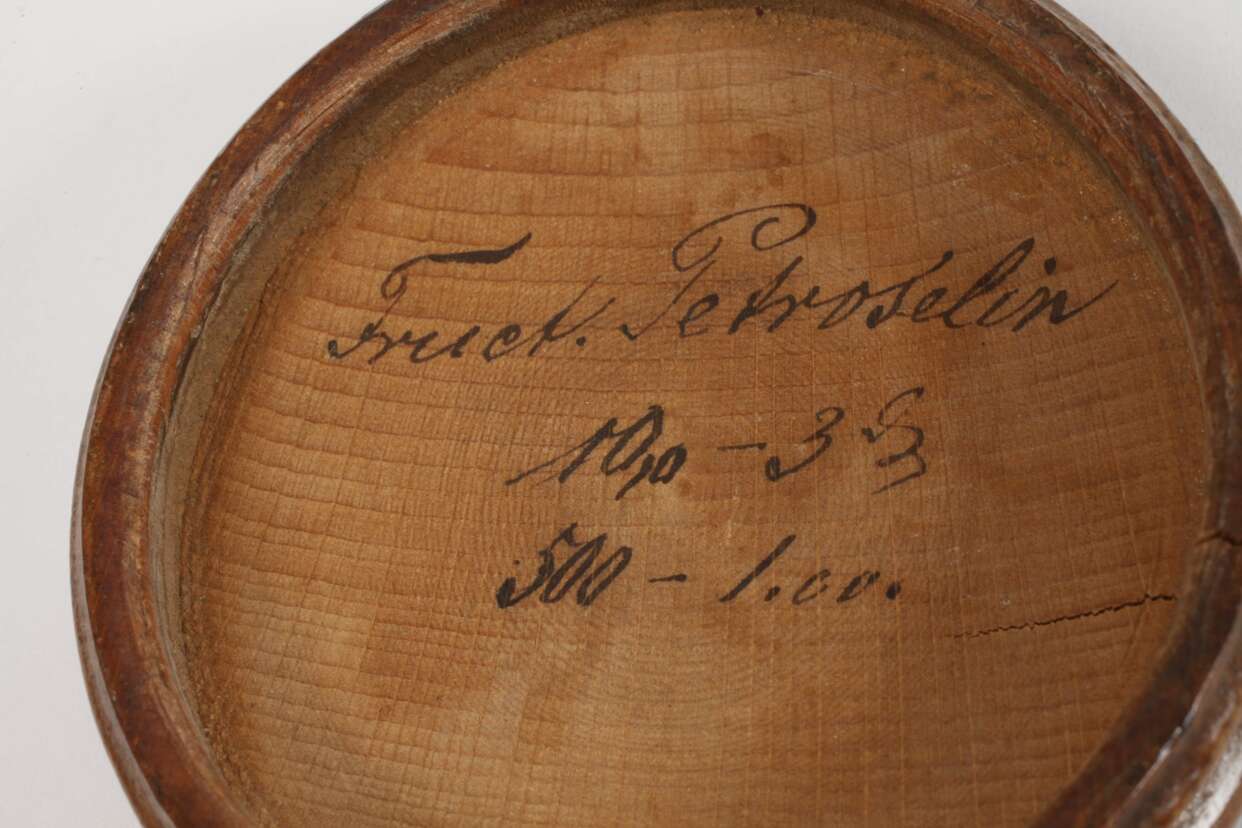 Fruct. Petroselin
10,0 – 3 ₰
500 – 1.00.